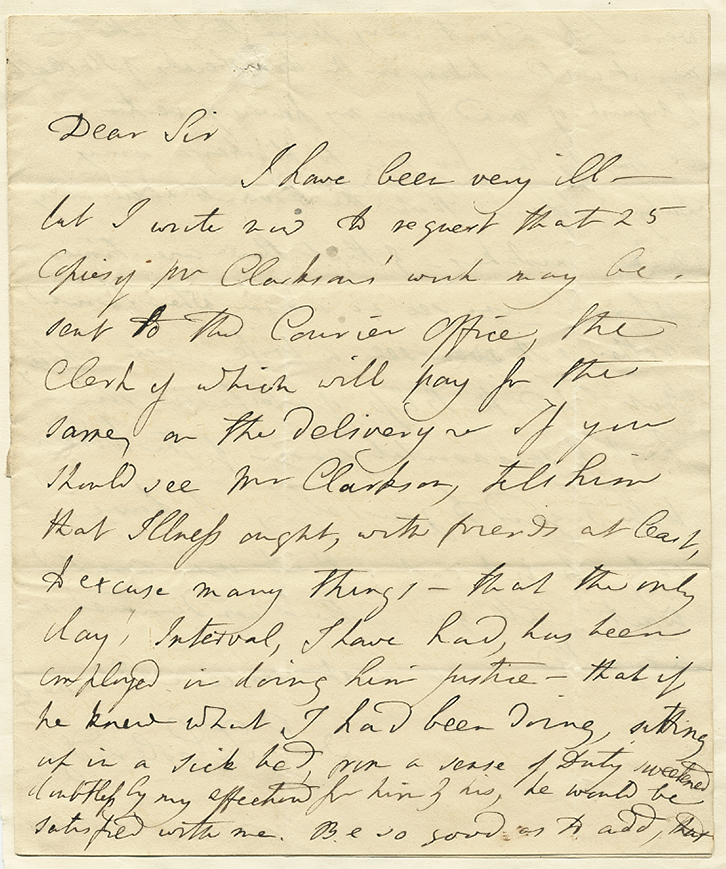 Dear Sir
I have been very ill—
but I write now to request that 25
Copies of Mr Clarkson's work may be
sent to the Courier Office, the
Clerk of which will pay for the
same, on the delivery— If you
should see Mr Clarkson, tell him
that Illness ought, with friends at least,
to excuse many things— that the only
day's Interval, I have had, has been
employed in doing him justice— that if
he knew what I had been doing, sitting
up in a sick bed, from a sense of Duty sweetened
doubtless by my affection for him & his, he would be
satisfied with me. Be so good as to add, that